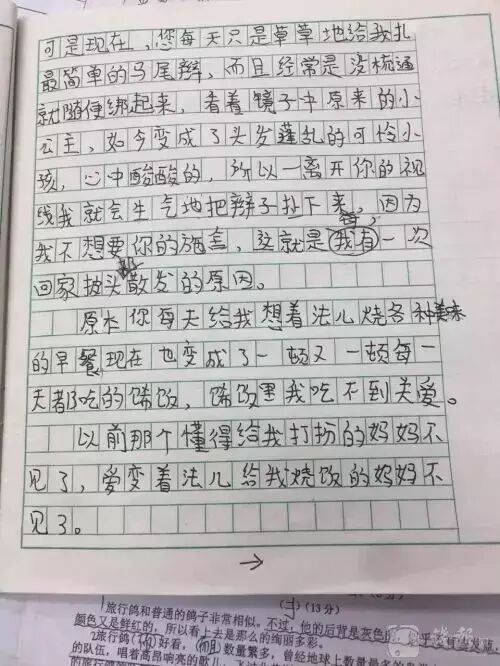 可是现在，您每天只是草草地给我扎
最简单的马尾辫，而且经常是没梳通
就随便绑起来，看着镜子中原来的小
公主，如今变成了头发蓬乱的可怜小
孩，心中酸酸的，所以一离开你的视
线我就会生气地把辫子扯下来，因为
我不想要你的施舍，这就是我有每一次
回家披头散发的原因。
原本你每天给我想着法儿烧各种美味
的早餐现在也变成了一顿又一顿每一
天都吃的馊饭，馊饭里我吃不到关爱。
以前那个懂得给我打扮的妈妈不
见了，爱变着法儿给我烧饭的妈妈不
见了。
→
(二) (13分)
1旅行鸽和普通的鸽子非常相似。不过，他的后背是灰色的
颜色又是鲜红的，所以看上去是那么的绚丽多彩。
2旅行鸽 好看，(而且)数量繁多，曾经是地球上数量最多的
的队伍，唱着高昂响亮的歌儿